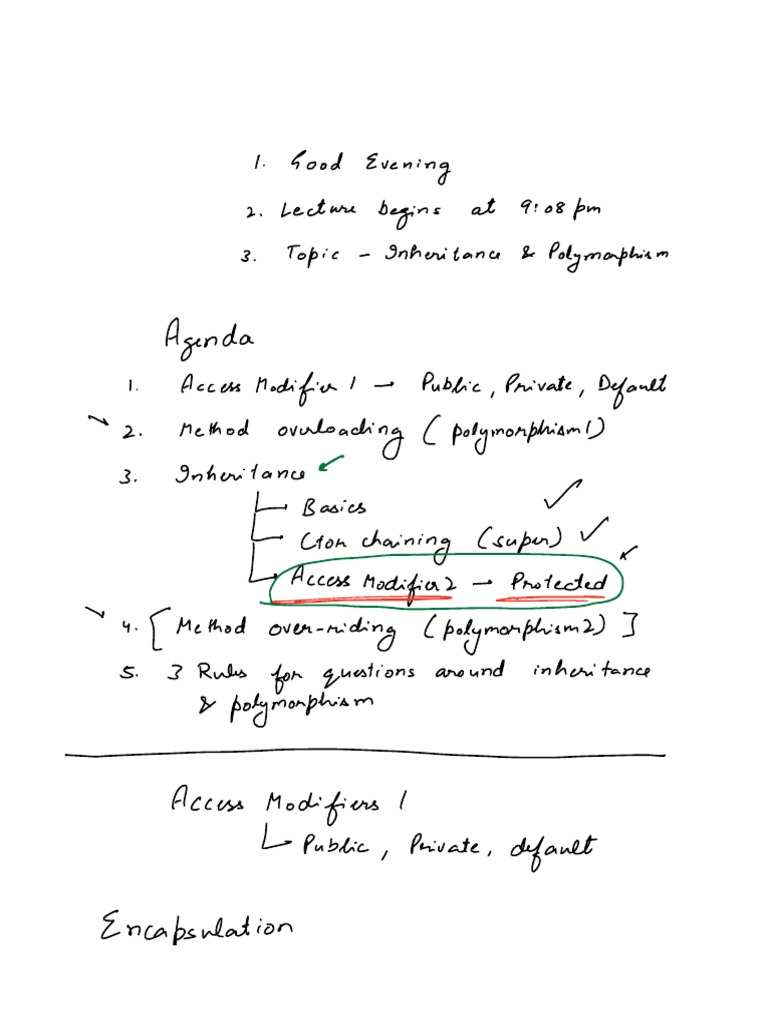 1. Good Evening
2. Lecture begins at 9:08 pm
3. Topic - Inheritance & Polymorphism
Agenda
1. Access Modifier 1 → Public, Private, Default
2. Method overloading (polymorphism1)
3. Inheritance
Basics
Ctor chaining (super)
Access Modifier 2 → Protected
4. [Method over-riding (polymorphism2)]
5. 3 Rules for questions around inheritance
& polymorphism
Access Modifiers 1
Public, Private, default
Encapsulation